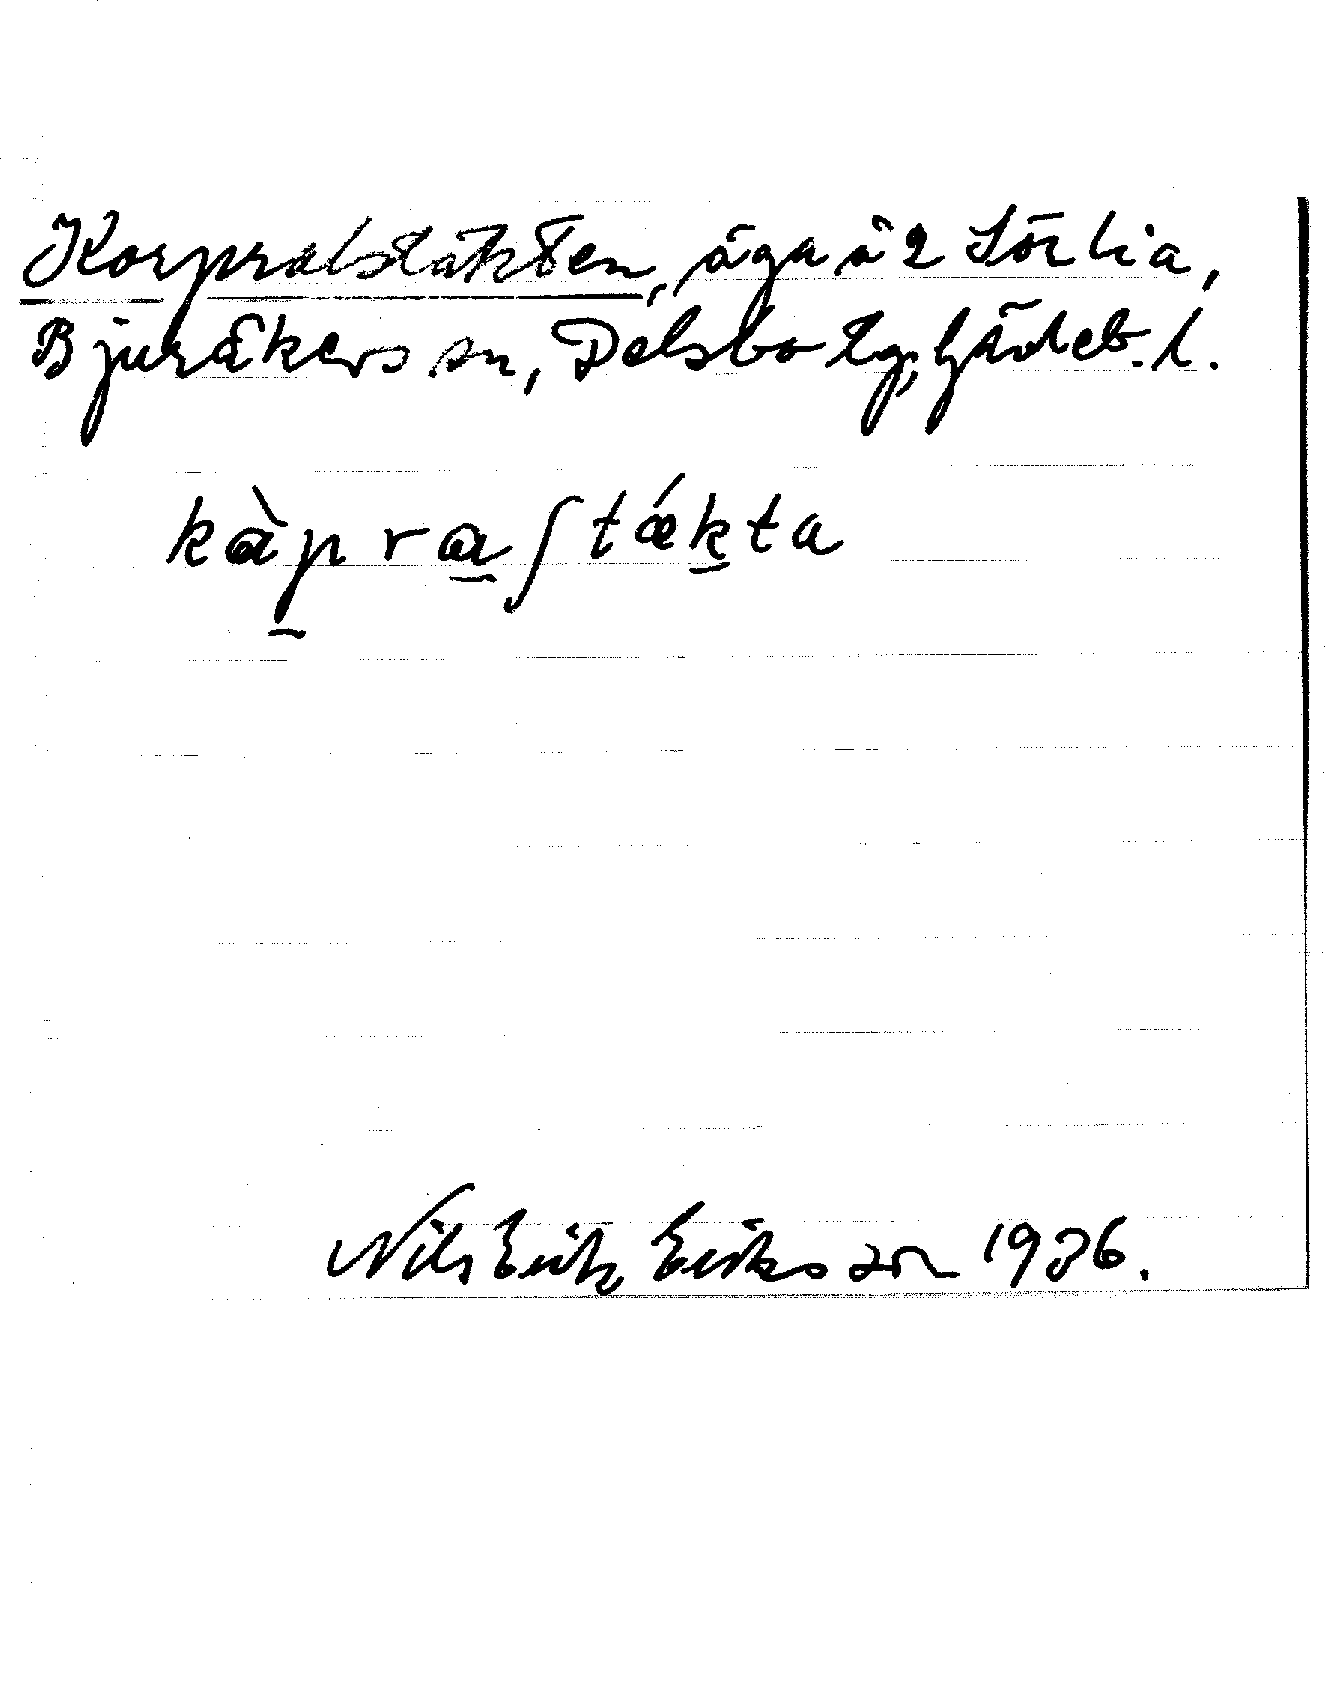 Korpralstäkten, äga å 2 Sörlia,
Bjuråkers sn, Delsbo tg, Gävleb. l.
kàpraʃtǽkta
Nils Erik Eriksson 1936.